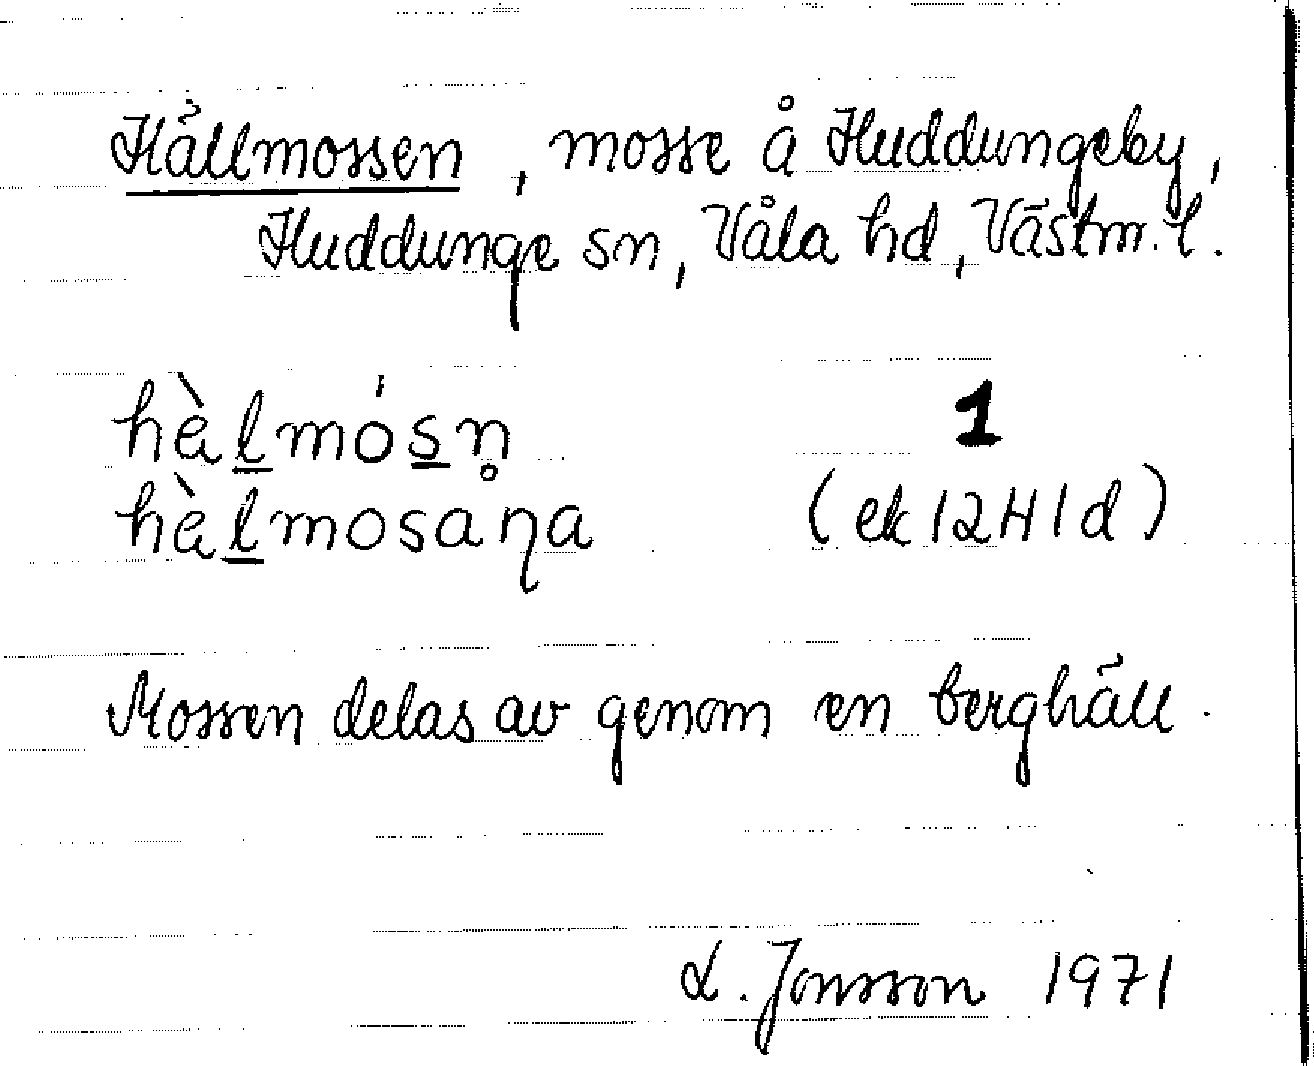 Hällmossen, mosse å Huddungeby,
Huddunge sn, Våla hd, Västm. l.
hèl̲mós̲n̥ 1
hèl̲mosaɳa (ek 12H1d)
Mossen delas av genom en berghäll.
L. Jonsson 1971